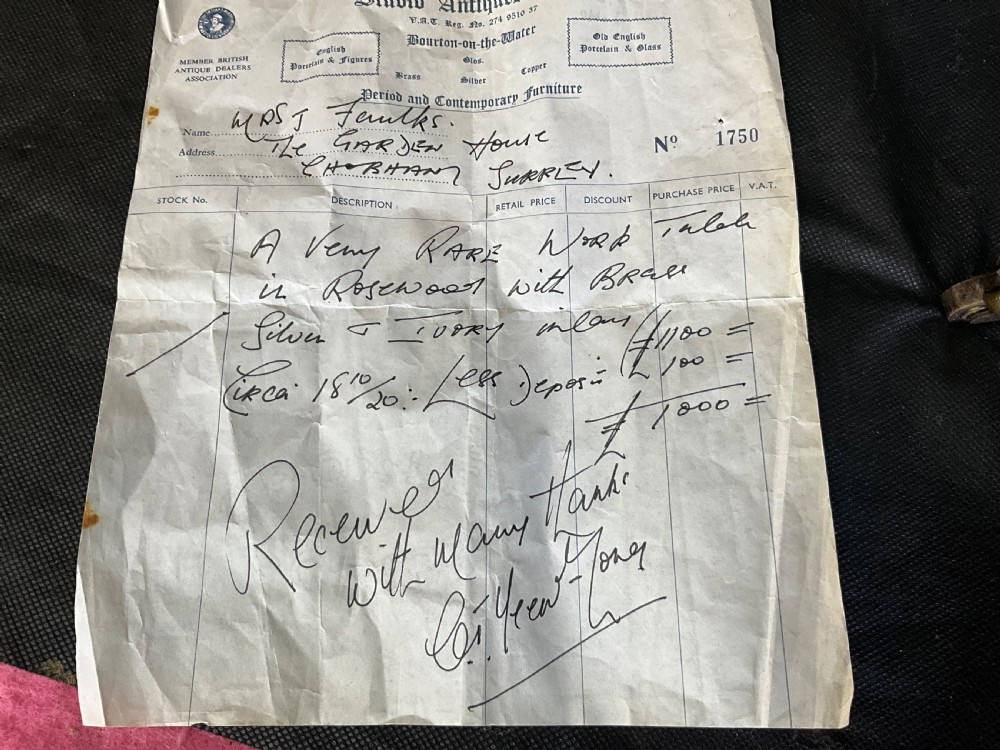 Studio Antiques
V.A.T. Reg. No. 274 9510 37
Bourton-on-the-Water
Glos.
MEMBER BRITISH
ANTIQUE DEALERS
ASSOCIATION
English
Porcelain & Figures
Old English
Porcelain & Glass
Brass Silver Copper
Period and Contemporary Furniture
Name MRS J Faulks.
Address The GARDEN House
CHOBHAM SURREY.
No 1750
STOCK No. DESCRIPTION RETAIL PRICE DISCOUNT PURCHASE PRICE V.A.T.
A Very RARE Work Table
in Rosewood with Brass
Silver & IVORY inlay £1100 =
Circa 1810/20: Less Deposit £100 =
£1000 =
Received
with many thanks